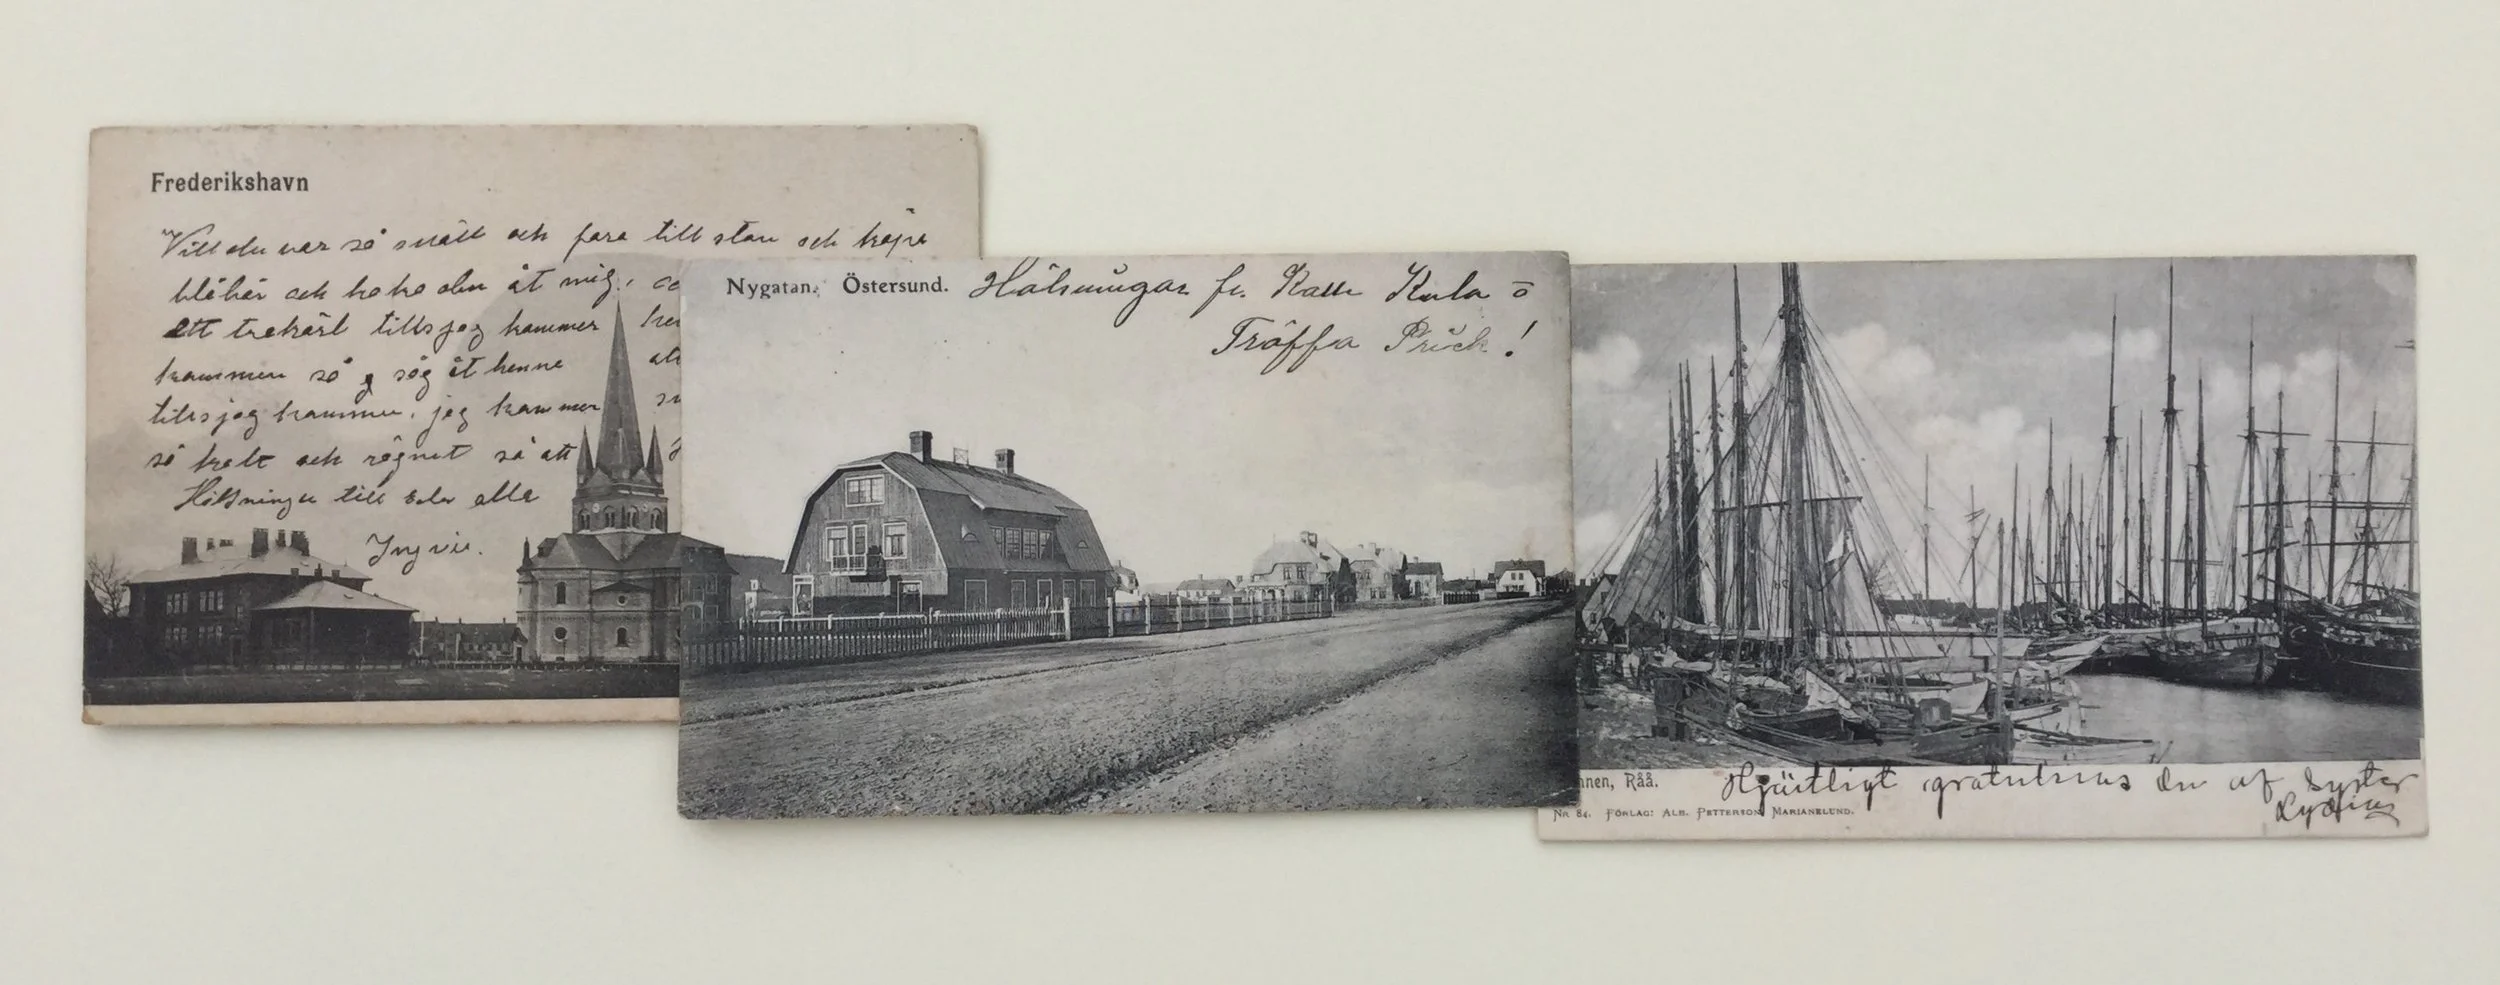 Frederikshavn
Vill du var så snäll och fara till stan och köpa
blåbär och koka dem åt mig,
ett trekärl tills jag kommer
kommer så säg åt henne
tills jag kommer. jag kommer
så kalt och rägnet så att
Hälsningar till Eder alla
Yngvie.
Nygatan. Östersund. Hälsningar fr. Kalle Kula o
Träffa Prick!
nnen, Råå. Hjärtligt gratuleras du af Syster
Lydia
Nr 84. Förlag: Alb. Petterson, Marianelund.